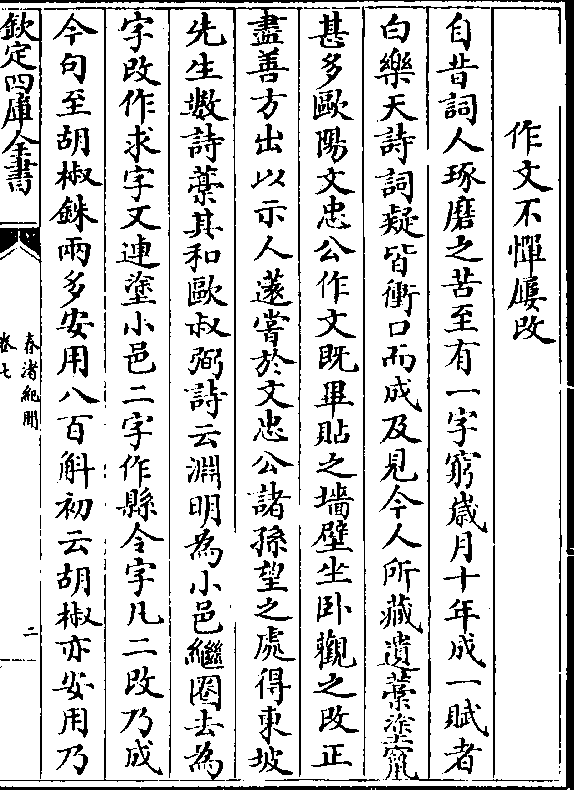 作文不憚屢改
自昔詞人琢磨之苦至有一字窮歲月十年成一賦者
白樂天詩詞疑皆衝口而成及見今人所藏遺藁塗竄
甚多歐陽文忠公作文既畢貼之墻壁坐卧觀之改正
盡善方出以示人薳嘗於文忠公諸孫望之處得東坡
先生數詩藁其和歐叔弼詩云淵明為小邑繼圈去為
字改作求字又連塗小邑二字作縣令字凡三改乃成
今句至胡椒銖兩多安用八百斛初云胡椒亦安用乃
欽定四庫全書
春渚紀聞
卷七
二